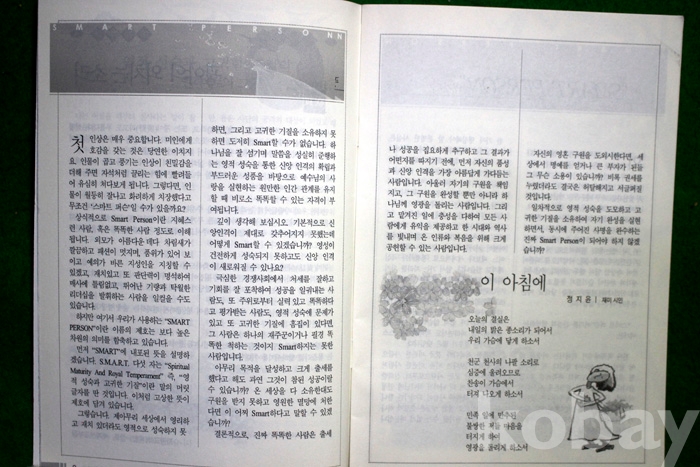 SMART PERSON
첫 인상은 매우 중요합니다. 미인에게
호감을 갖는 것은 당연한 이치지
요. 인물이 곱고 풍기는 인상이 친밀감을
더해 주면 자석처럼 끌리는 힘에 빨려들
어 유심히 쳐다보게 됩니다. 그렇다면, 인
물이 훤동히 잘나고 화려하게 치장했다고
무조건 '스마트 퍼슨'일 수가 있을까요?
상식적으로 Smart Person이란 지혜스
런 사람, 혹은 똑똑한 사람 정도로 이해
됩니다. 외모가 아름다운 데다 차림새가
깔끔하고 패션이 멋지며, 품위가 있어 보
이고 예의가 바른 지성인을 지칭할 수
있겠고, 재치있고 또 판단력이 명석하여
매사에 틀림없고, 뛰어난 기량과 탁월한
리더십을 발휘하는 사람을 일컬을 수도
있습니다.
하지만 여기서 우리가 사용하는 "SMART
PERSON"이란 이름의 제호는 보다 높은
차원의 의미를 함축하고 있습니다.
먼저 "SMART"에 내포된 뜻을 설명하
겠습니다. S.M.A.R.T. 다섯 자는 "Spiritual
Maturity And Royal Temperament" 즉, "영
적 성숙과 고귀한 기질"이란 말의 머릿
글자를 딴 것입니다. 이처럼 고상한 뜻이
제호에 담겨 있습니다.
그렇습니다. 제아무리 세상에서 영리하
고 재치 있더라도 영적으로 성숙하지 못
하면, 그리고 고귀한 기질을 소유하지 못
하면 도저히 Smart할 수가 없습니다. 하
나님을 잘 섬기며 말씀을 성실히 준행하
는 영적 성숙을 통한 신앙 인격의 확립과
부드러운 성품을 바탕으로 예수님의 사
랑을 실현하는 원만한 인간 관계를 유지
할 때 비로소 똑똑할 수 있는 자격이 부
여됩니다.
깊이 생각해 보십시오. 기본적으로 신
앙인격이 제대로 갖추어지지 못했는데
어떻게 Smart할 수 있겠습니까? 영성이
건전하게 성숙되지 못하고도 신앙 인격
이 새로워질 수 있나요?
극심한 경쟁사회에서 처세를 잘하고
기회를 잘 포착하여 성공을 일궈내는 사
람도, 또 주위로부터 실력 있고 똑똑하다
고 평가받는 사람도, 영적 성숙에 문제가
있고 또 고귀한 기질에 흠집이 있다면,
그 사람은 하나의 재주꾼이거나 필경 똑
똑한 척하는 것이지 Smart하지는 못한
사람입니다.
아무리 목적을 달성하고 크게 출세를
했다고 해도 과연 그것이 참된 성공이랄
수 있습니까? 온 세상을 다 소유한대도
구원을 받지 못하고 영원한 멸망에 처한
다면 이 어찌 Smart하다고 말할 수 있겠
습니까?
결론적으로, 진짜 똑똑한 사람은 출세
나 성공을 집요하게 추구하고 그 결과가
어떤지를 따지기 전에, 먼저 자신의 품성
과 신앙 인격을 가장 아름답게 가다듬는
사람입니다. 아울러 자기의 구원을 책임
지고, 그 구원을 완성할 뿐만 아니라 하
나님께 영광을 돌리는 사람입니다. 그리
고 맡겨진 일에 충성을 다하여 모든 사
람에게 유익을 제공하고 한 시대와 역사
를 빛내며 온 인류와 복음을 위해 크게
공헌할 수 있는 사람입니다.
자신의 영혼 구원을 도외시한다면, 세
상에서 명예를 얻거나 큰 부자가 된들
그 무슨 소용이 있습니까? 비록 권세를
누렸더라도 결국은 허탈해지고 서글퍼질
것입니다.
일차적으로 영적 성숙을 도모하고 고
귀한 기질을 소유하여 자기 완성을 실현
하면서, 동시에 주어진 사명을 완수하는
진짜 Smart Person이 되어야 하지 않겠
습니까?
이 아침에
정지윤 | 재미 시인
오늘의 결심은
내일의 밝은 종소리가 되어서
우리 가슴에 닿게 하소서
천군 천사의 나팔 소리로
심중에 울려오므로
찬송이 가슴에서
터져 나오게 하소서
민족 앞에
불쌍한 저들 마음을
터지게 하여
영광을 돌리게 하소서
today